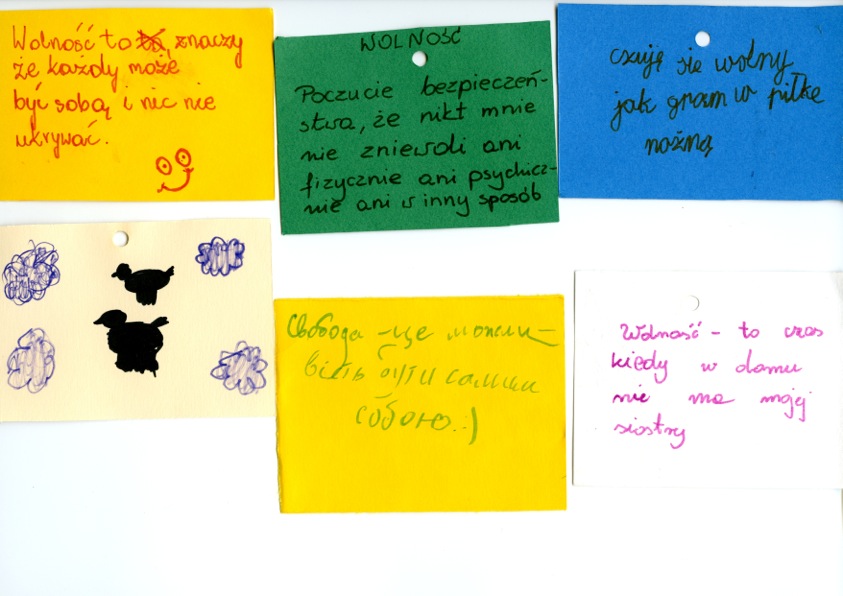 Wolność to znaczy
że każdy może
być sobą i nic nie
ukrywać.
WOLNOŚĆ
Poczucie bezpieczeń-
stwa, że nikt mnie
nie zniewoli ani
fizycznie ani psychicz-
nie ani w inny sposób
czuję się wolny
jak gram w piłkę
nożną
Свобода - це можли-
вість бути самим
собою :)
Wolność - to czas
kiedy w domu
nie ma mojej
siostry